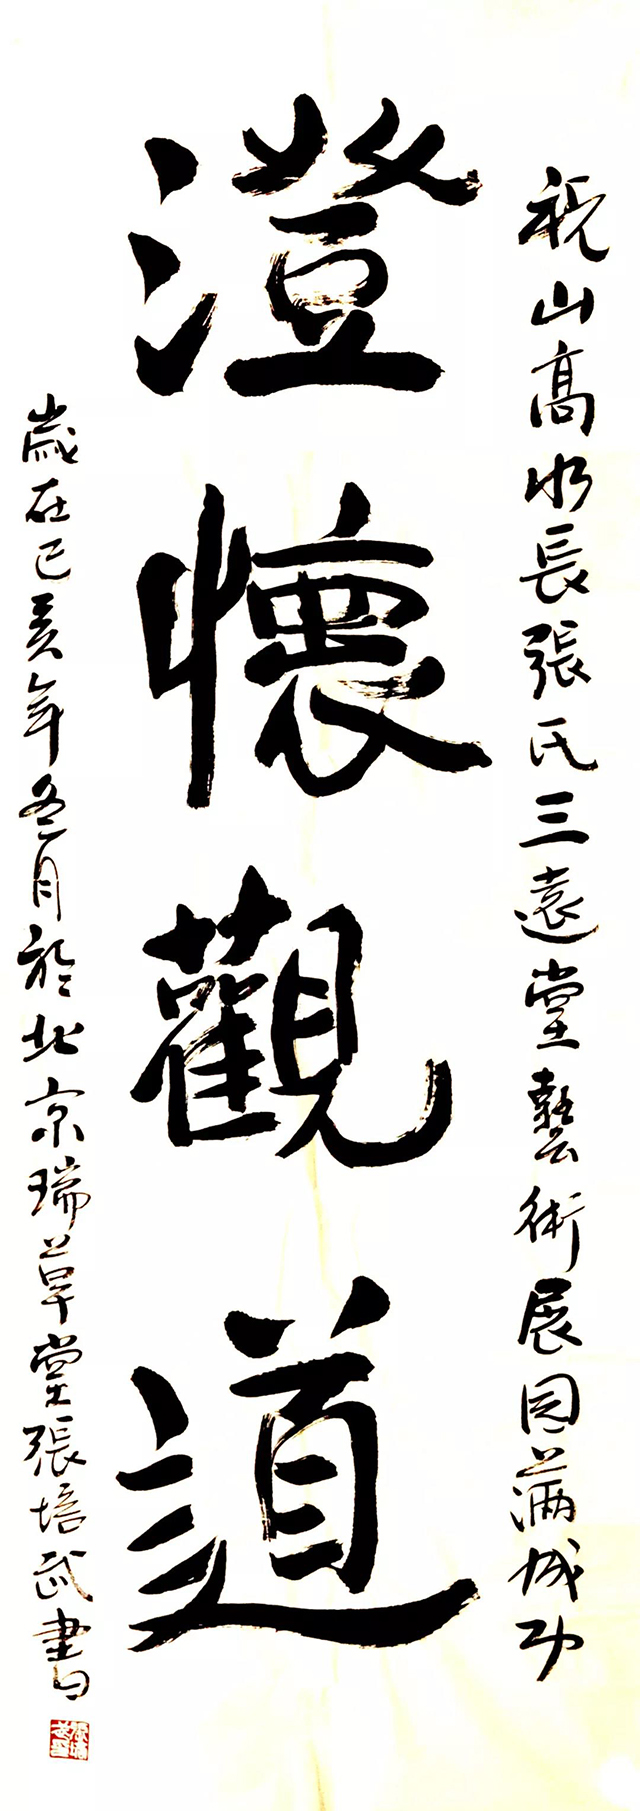 祝山高水长張氏三遠堂藝術展园满成功
澄懷觀道
歲在己亥年冬月於北京瑞草堂張培武書